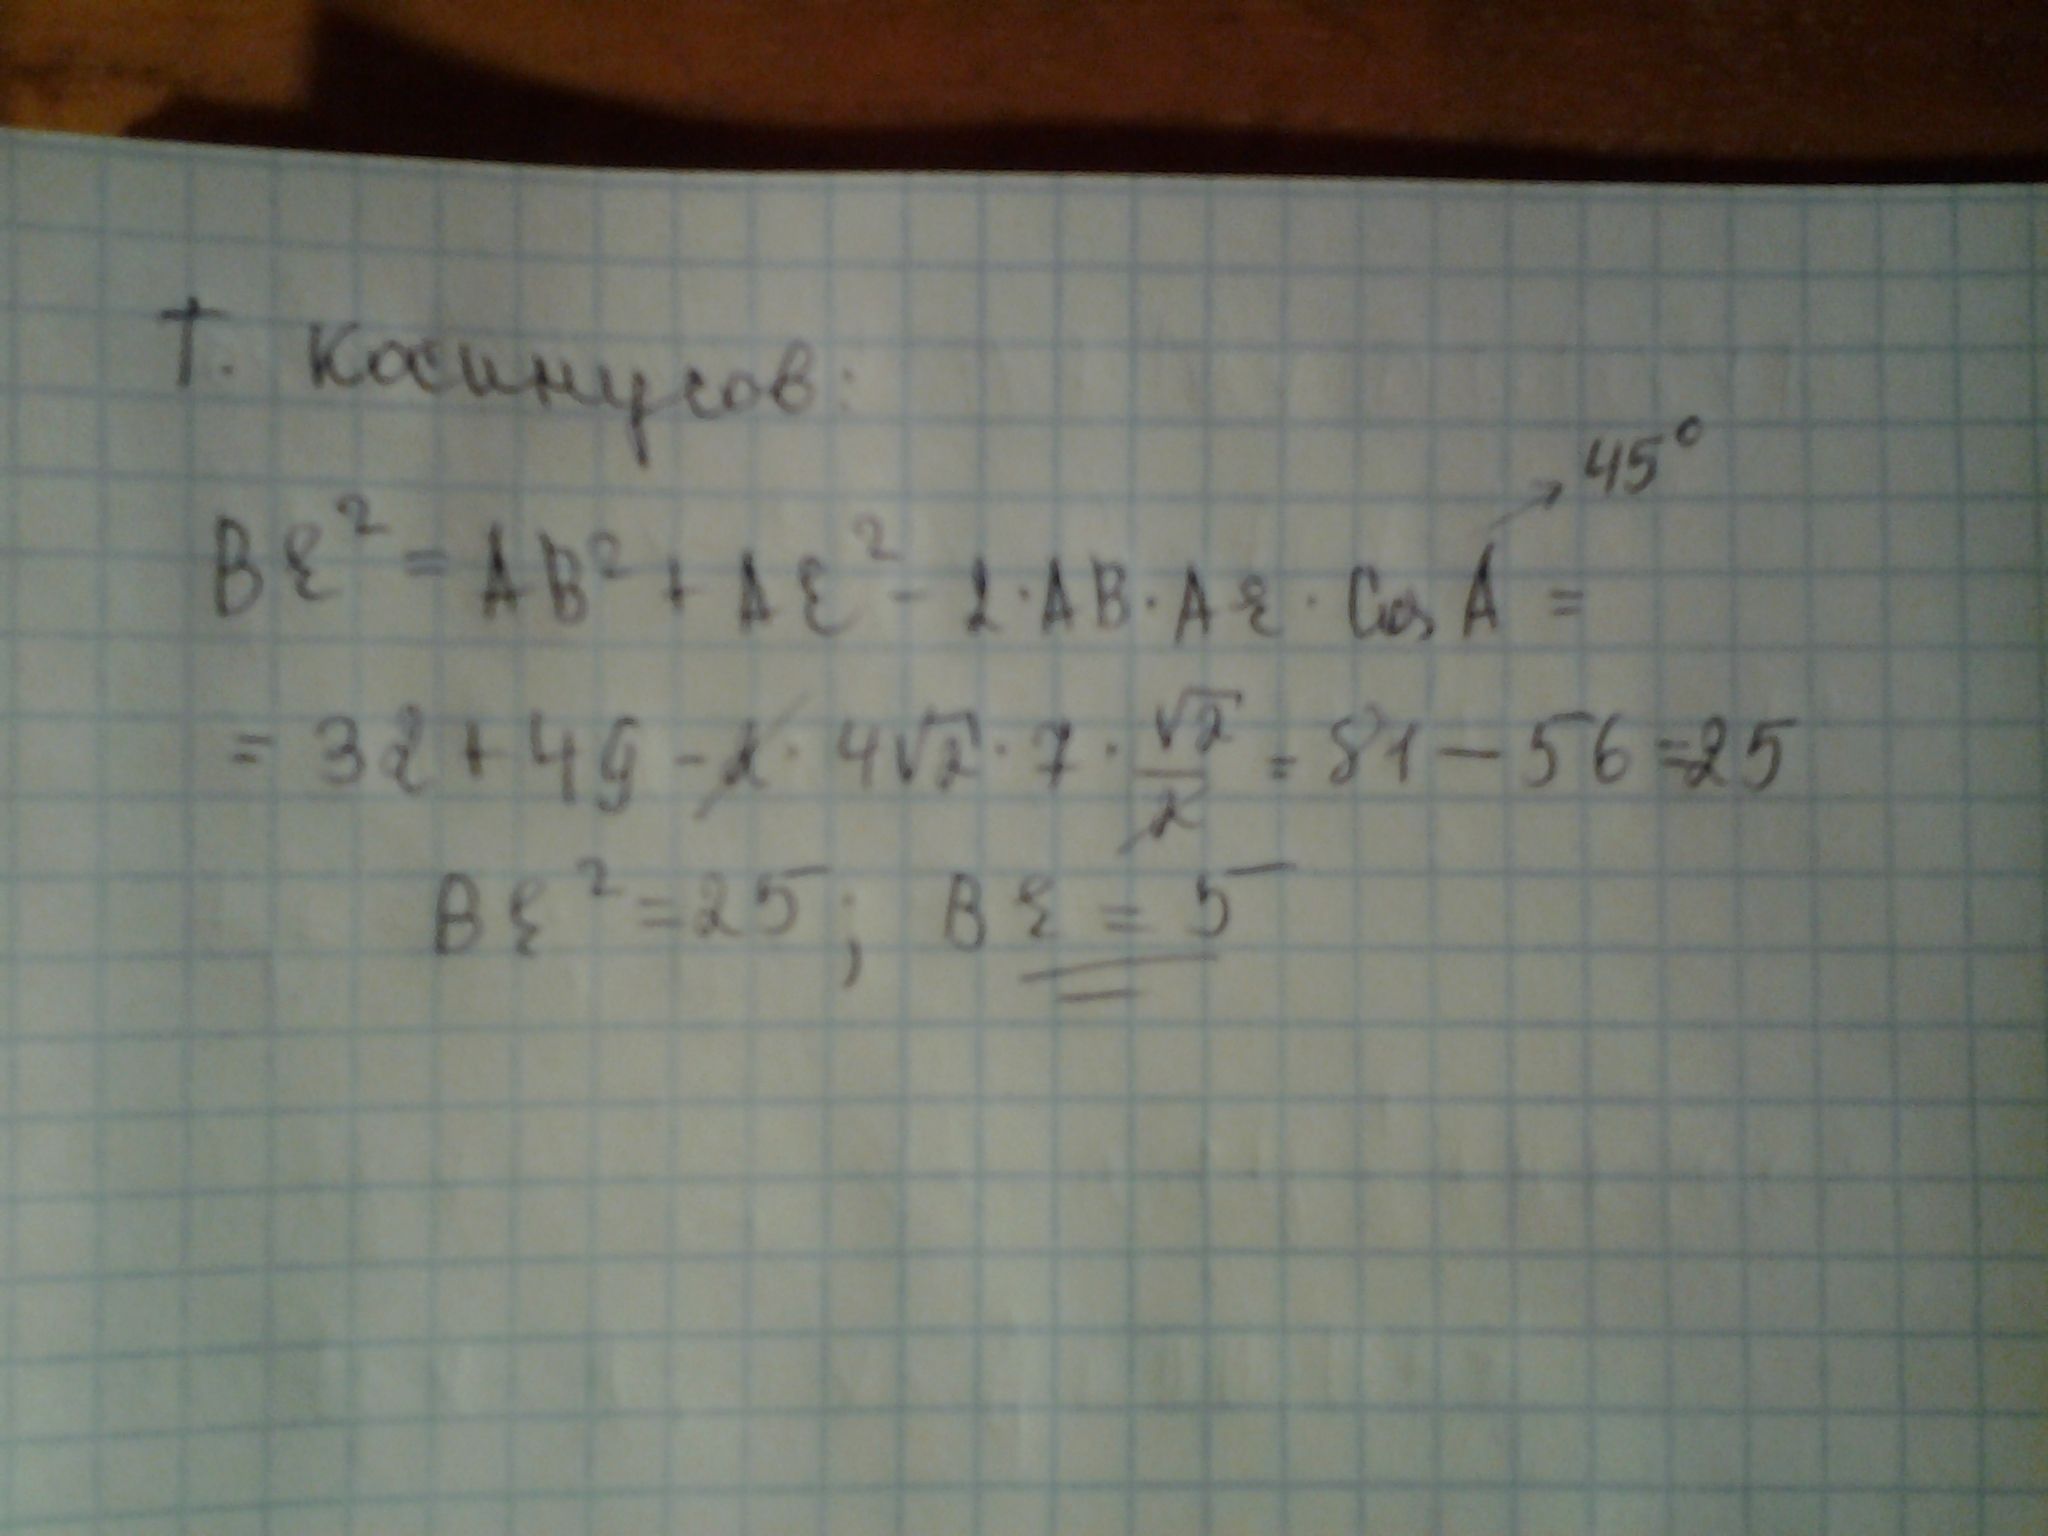 Т. Косинусов:
45°
BE² = AB² + AE² - 2·AB·AE·Cos A =
= 32 + 49 - 2·4√2·7·√2/2 = 81 - 56 = 25
BE² = 25; BE = 5